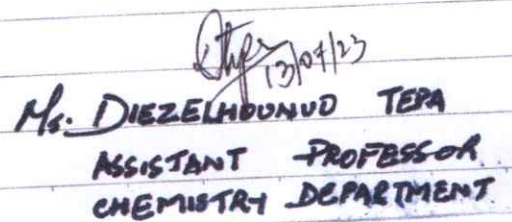 13/07/23
Ms. DIEZELHOUNUO TEPA
ASSISTANT PROFESSOR
CHEMISTRY DEPARTMENT